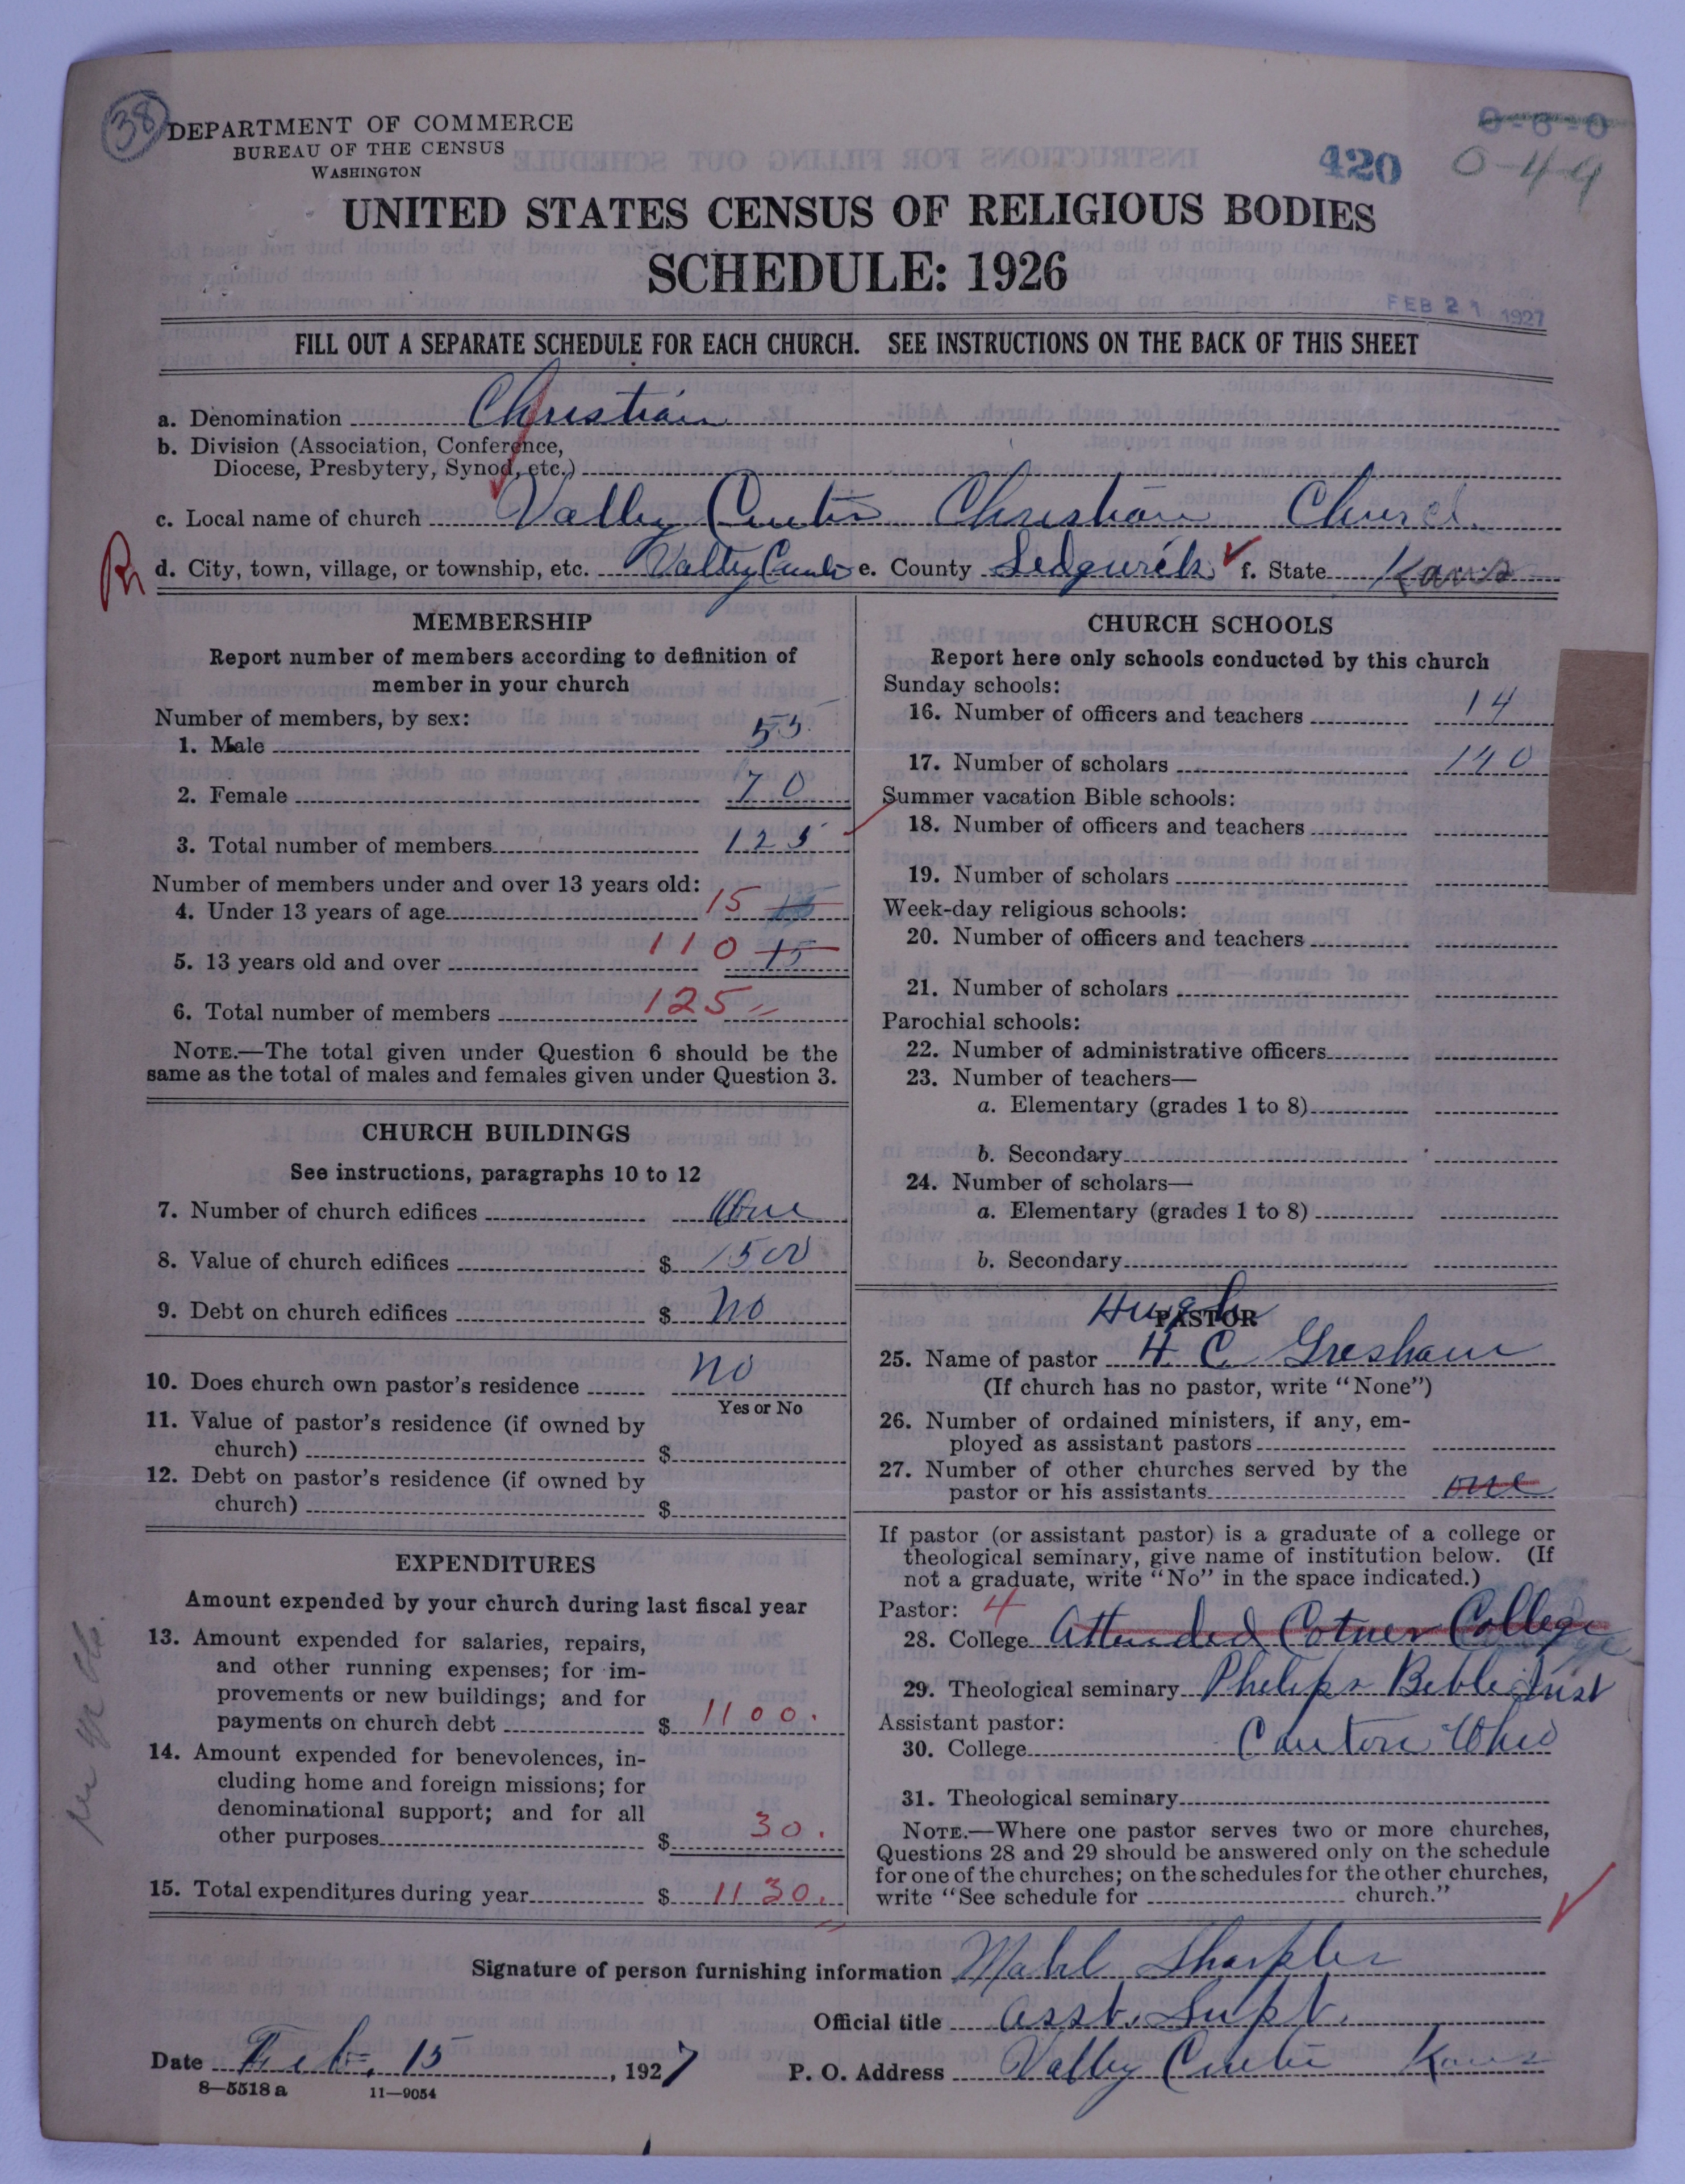 38
DEPARTMENT OF COMMERCE
BUREAU OF THE CENSUS
WASHINGTON
0-6-0
420 0-49
UNITED STATES CENSUS OF RELIGIOUS BODIES
SCHEDULE: 1926
FEB 21 1927
FILL OUT A SEPARATE SCHEDULE FOR EACH CHURCH. SEE INSTRUCTIONS ON THE BACK OF THIS SHEET
a. Denomination Christian
b. Division (Association, Conference,
Diocese, Presbytery, Synod, etc.)
c. Local name of church Valley Center Christian Church
d. City, town, village, or township, etc. Valley Center e. County Sedgwick f. State Kans
MEMBERSHIP
Report number of members according to definition of
member in your church
Number of members, by sex:
1. Male 55
2. Female 70
3. Total number of members 125
Number of members under and over 13 years old:
4. Under 13 years of age 15
5. 13 years old and over 110 15
6. Total number of members 125
NOTE.—The total given under Question 6 should be the
same as the total of males and females given under Question 3.
CHURCH BUILDINGS
See instructions, paragraphs 10 to 12
7. Number of church edifices One
8. Value of church edifices $ 1500
9. Debt on church edifices $ no
10. Does church own pastor's residence no
Yes or No
11. Value of pastor's residence (if owned by
church) $
12. Debt on pastor's residence (if owned by
church) $
EXPENDITURES
Amount expended by your church during last fiscal year
13. Amount expended for salaries, repairs,
and other running expenses; for im-
provements or new buildings; and for
payments on church debt $ 1100.
14. Amount expended for benevolences, in-
cluding home and foreign missions; for
denominational support; and for all
other purposes $ 30.
15. Total expenditures during year $ 1130.
CHURCH SCHOOLS
Report here only schools conducted by this church
Sunday schools:
16. Number of officers and teachers 14
17. Number of scholars 140
Summer vacation Bible schools:
18. Number of officers and teachers
19. Number of scholars
Week-day religious schools:
20. Number of officers and teachers
21. Number of scholars
Parochial schools:
22. Number of administrative officers
23. Number of teachers—
a. Elementary (grades 1 to 8)
b. Secondary
24. Number of scholars—
a. Elementary (grades 1 to 8)
b. Secondary
Hugh
PASTOR
25. Name of pastor H C Gresham
(If church has no pastor, write "None")
26. Number of ordained ministers, if any, em-
ployed as assistant pastors
27. Number of other churches served by the
pastor or his assistants one
If pastor (or assistant pastor) is a graduate of a college or
theological seminary, give name of institution below. (If
not a graduate, write "No" in the space indicated.)
Pastor: 4
28. College Attended Cotner College
29. Theological seminary Phelips Bible Inst
Assistant pastor:
30. College Canton Ohio
31. Theological seminary
NOTE.—Where one pastor serves two or more churches,
Questions 28 and 29 should be answered only on the schedule
for one of the churches; on the schedules for the other churches,
write "See schedule for church."
Signature of person furnishing information Mahl Sharpler
Official title Asst. Supt.
Date Feb. 15, 1927 P. O. Address Valley Center Kans
8—5518 a 11—9054